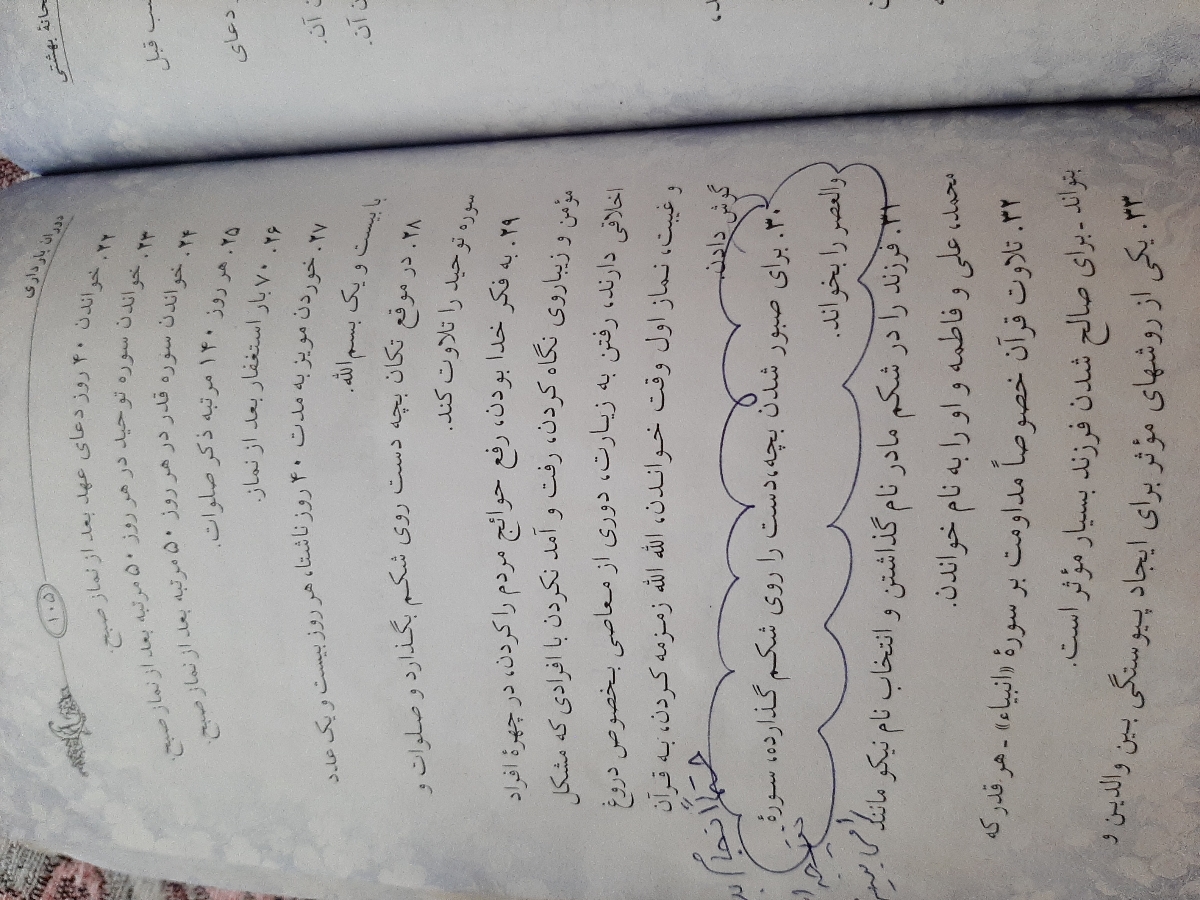 دوران بارداری
۱۰۵
۲۲. خواندن ۴۰ روز دعای عهد بعد از نماز صبح.
۲۳. خواندن سوره توحید در هر روز ۵۰ مرتبه بعد از نماز صبح.
۲۴. خواندن سوره قدر در هر روز ۵۰ مرتبه بعد از نماز صبح.
۲۵. هر روز ۱۴۰ مرتبه ذکر صلوات.
۲۶. ۷۰ بار استغفار بعد از نماز.
۲۷. خوردن مویز به مدت ۴۰ روز ناشتا، هر روز بیست و یک عدد
با بیست و یک بسم الله.
۲۸. در موقع تکان بچه دست روی شکم بگذارد و صلوات و
سوره توحید را تلاوت کند.
۲۹. به فکر خدا بودن، رفع حوائج مردم را کردن، در چهرهٔ افراد
مؤمن و زیباروی نگاه کردن، رفت و آمد نکردن با افرادی که مشکل
اخلاقی دارند، رفتن به زیارت، دوری از معاصی بخصوص دروغ
و غیبت، نماز اول وقت خواندن، الله الله زمزمه کردن، به قرآن
گوش دادن.
حتماً انجام
۳۰. برای صبور شدن بچه، دست را روی شکم گذارده، سورهٔ
والعصر را بخواند.
۳۱. فرزند را در شکم مادر نام گذاشتن و انتخاب نام نیکو مانند
محمد، علی و فاطمه و او را به نام خواندن.
۳۲. تلاوت قرآن خصوصاً مداومت بر سورهٔ «انبیاء» - هر قدر که
بتواند - برای صالح شدن فرزند بسیار مؤثر است.
۳۳. یکی از روشهای مؤثر برای ایجاد پیوستگی بین والدین و
بهشتی
قبل
دعای
آن.
آن.